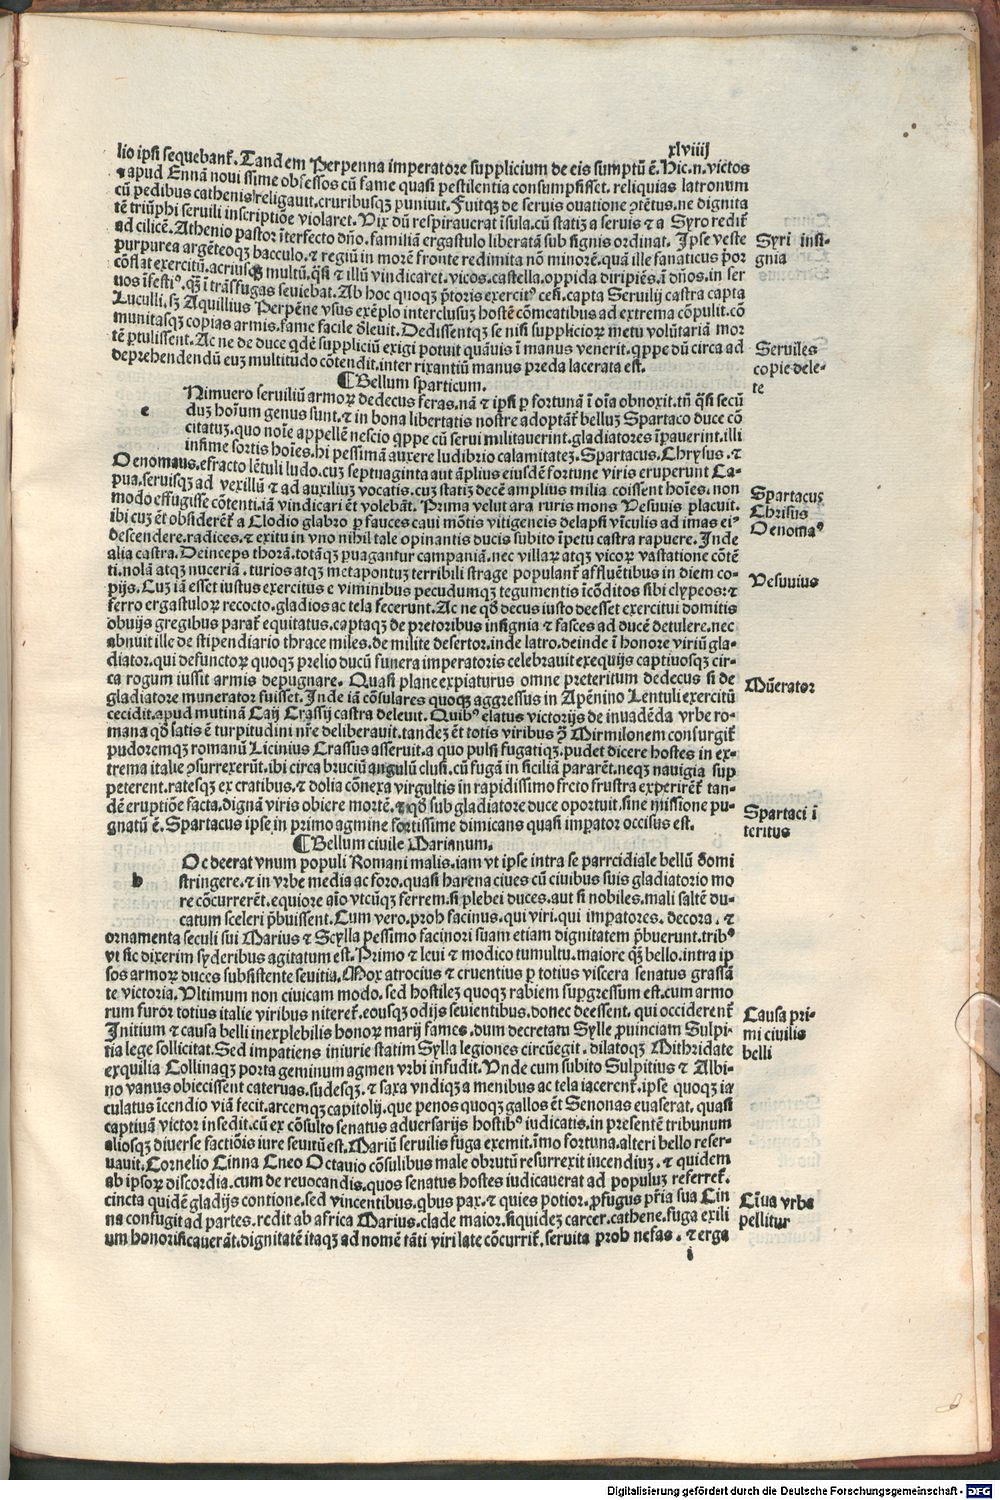 xlviiij
lio ipsi sequebant̃. Tandem Perpenna imperatore supplicium de eis sumptũ ẽ. Hic.n. victos
⁊ apud Ennã novissime obsessos cũ fame quasi pestilentia consumpsisset. reliquias latronum
cũ pedibus cathenis religavit. cruribusqꝫ puniuit. Fuitqꝫ de servis ovatione ꝯtẽtus. ne dignita
tẽ triũphi servili inscriptiõe violaret. Vix dũ respirauerat ĩsula. cũ statiꝫ a servis ⁊ a Syro redit̃
ad cilicẽ. Athenio pastor ĩterfecto dño. familiã ergastulo liberatã sub signis ordinat. Ipse veste
purpurea argẽteoqꝫ bacculo. ⁊ regiũ in morẽ fronte redimita nõ minorẽ. quã ille fanaticus p̃or
cõflat exercitũ. acriusqꝫ multũ. q̃si ⁊ illũ vindicaret. vicos. castella. oppida diripiẽs. ĩ dños. in ser
uos ĩfestiꝰ. qꝫ ĩ trãsfugas seviebat. Ab hoc quoqꝫ p̃toris exercitꝰ cesi. capta Servilij castra capta
Luculli. sꝫ Aquillius Perpẽne vsus exẽplo interclusuꝫ hostẽ cõmeatibus ad extrema cõpulit. cõ
munitasqꝫ copias armis. fame facile d̃leuit. Dedissentqꝫ se nisi supplicioꝝ metu volũtariã mor
tẽ ꝑtulissent. Ac ne de duce qdẽ suppliciũ exigi potuit quãuis ĩ manus venerit. qꝑpe dũ circa ad
deprehendendũ euꝫ multitudo cõtendit. inter rixantiũ manus preda lacerata est.
Syri insi-
gnia
Serviles
copie dele-
te
¶ Bellum sparticum.
e
Nimuero serviliũ armoꝝ dedecus feras. nã ⁊ ipsi ꝑ fortunã ĩ oĩa obnoxii. tñ q̃si secũ
duꝫ hoĩum genus sunt. ⁊ in bona libertatis nostre adoptãt̃ belluꝫ Spartaco duce cõ
citatuꝫ. quo noĩe appellẽ nescio qꝑpe cũ servi militauerint. gladiatores ĩꝑauerint. illi
infime sortis hoĩes. hi pessimã auxere ludibrio calamitateꝫ. Spartacus. Chrysus. ⁊
Oenomaus. efracto lẽtuli ludo. cuꝫ septuaginta aut ãplius eiusdẽ fortune viris eruperunt Ca-
pua. servisqꝫ ad vexillũ ⁊ ad auxiliuꝫ vocatis. cuꝫ statiꝫ decẽ amplius milia coissent hoĩes. non
modo effugisse cõtenti. iã vindicari ẽt volebãt. Prima velut ara ruris mons Vesuvis placuit.
ibi cuꝫ ẽt obsiderẽt̃ a Clodio glabro ꝑ fauces caui mõtis vitigeneis delapsi vĩculis ad imas eiꝰ
descendere. radices. ⁊ exitu in vno nihil tale opinantis ducis subito ĩpetu castra rapuere. Inde
alia castra. Deinceps thorã. totãqꝫ ꝑuagantur campaniã. nec villaꝝ atqꝫ vicoꝝ vastatione cõtẽ
ti. nolã atqꝫ nuceriã. turios atqꝫ metapontuꝫ terribili strage populant̃ affluẽtibus in diem co-
pijs. Cuꝫ iã esset iustus exercitus e viminibus pecudumqꝫ tegumentis ĩcõditos sibi clypeos: ⁊
ferro ergastuloꝝ recocto. gladios ac tela fecerunt. Ac ne qd̃ decus iusto deesset exercitui domitis
obuijs gregibus parat̃ equitatus. captaqꝫ de pretoribus insignia ⁊ fasces ad ducẽ detulere. nec
abnuit ille de stipendiario thrace miles. de milite desertor. inde latro. deinde ĩ honore viriũ gla-
diator. qui defunctoꝝ quoqꝫ prelio ducũ funera imperatoris celebrauit exequijs captiuosqꝫ cir-
ca rogum iussit armis depugnare. Quasi plane expiaturus omne preteritum dedecus si de
gladiatore munerator fuisset. Inde iã cõsulares quoqꝫ aggressus in Apẽnino Lentuli exercitũ
cecidit. apud mutinã Caij Crassij castra deleuit. Quibꝰ elatus victorijs de inuadẽda vrbe ro-
mana qd̃ satis ẽ turpitudini nr̃e deliberauit. tandeꝫ ẽt totis viribus ꝯ̃ Mirmilonem consurgit̃
pudoremqꝫ romanũ Licinius Crassus asseruit. a quo pulsi fugatiqꝫ. pudet dicere hostes in ex-
trema italie ꝯsurrexerũt. ibi circa bruciũ angulũ clusi. cũ fugã in siciliã pararẽt. neqꝫ nauigia sup
peterent. ratesqꝫ ex cratibus. ⁊ dolia cõnexa virgultis in rapidissimo freio frustra experirẽt̃ tan-
dẽ eruptiõe facta. dignã viris obiere mortẽ. ⁊ qd̃ sub gladiatore duce oportuit. sine missione pu-
gnatũ ẽ. Spartacus ipse in primo agmine fortissime dimicans quasi imꝑator occisus est.
Spartacus
Chrisus
Oenomaꝰ
Vesuvius
Mũerator
Spartaci ĩ
teritus
¶ Bellum civile Marianum.
h
Oc deerat vnum populi Romani malis. iam vt ipse intra se parrcidiale bellũ domi
stringere. ⁊ in vrbe media ac foro. quasi harena ciues cũ civibus suis gladiatorio mo
re cõcurrerẽt. equiore aĩo vtcũqꝫ ferrem. si plebei duces. aut si nobiles. mali saltẽ du-
catum sceleri p̃buissent. Cum vero. proh facinus. qui viri. qui imꝑatores. decora. ⁊
ornamenta seculi sui Marius ⁊ Scylla pessimo facinori suam etiam dignitatem p̃buerunt. tribꝰ
vt sic dixerim syderibus agitatum est. Primo ⁊ leui ⁊ modico tumultu. maiore qꝫ bello. intra ip̃
sos armoꝝ duces subsistente sevitia. Mox atrocius ⁊ cruentius ꝑ totius viscera senatus grassã
te victoria. Vltimum non civicam modo. sed hostileꝫ quoqꝫ rabiem suꝑgressum est. cum armo
rum furor totius italie viribus niteret̃. eousqꝫ odijs sevientibus. donec deessent. qui occiderent̃
Initium ⁊ causa belli inexplebilis honoꝝ marij fames. dum decretam Sylle ꝓuinciam Sulpi-
tia lege sollicitat. Sed impatiens iniurie statim Sylla legiones circũegit. dilatoqꝫ Mithridate
exquilia Collinaqꝫ porta geminum agmen vrbi infudit. Vnde cum subito Sulpitius ⁊ Albi-
no vanus obiecissent cateruas. sudesqꝫ. ⁊ saxa vndiqꝫ a menibus ac tela iacerent̃. ipse quoqꝫ ia
culatus ĩcendio viã fecit. arcemqꝫ capitolij. que penos quoqꝫ gallos ẽt Senonas euaserat. quasi
captiuã victor insedit. cũ ex cõsulto senatus adversarijs hostibꝰ iudicatis. in presentẽ tribunum
aliosqꝫ diverse factiõis iure sevitũ est. Mariũ servilis fuga exemit. ĩmo fortuna. alteri bello reser-
vauit. Cornelio Cinna Cneo Octavio cõsulibus male obrutũ resurrexit incendiuꝫ. ⁊ quidem
ab ipsoꝝ discordia. cum de reuocandis. quos senatus hostes iudicauerat ad populuꝫ referret̃.
cincta quidẽ gladijs contione. sed vincentibus. qbus pax. ⁊ quies potior. ꝓfugus pr̃ia sua Cin
na confugit ad partes. redit ab africa Marius. clade maior. siquideꝫ carcer. cathene. fuga exili
um honorificauerãt. dignitatẽ itaqꝫ ad nomẽ tãti viri late cõcurrit̃. servita proh nefas. ⁊ erga
Causa pri-
mi civilis
belli
Cĩna vrbe
pellitur
i
Digitalisierung gefördert durch die Deutsche Forschungsgemeinschaft - DFG